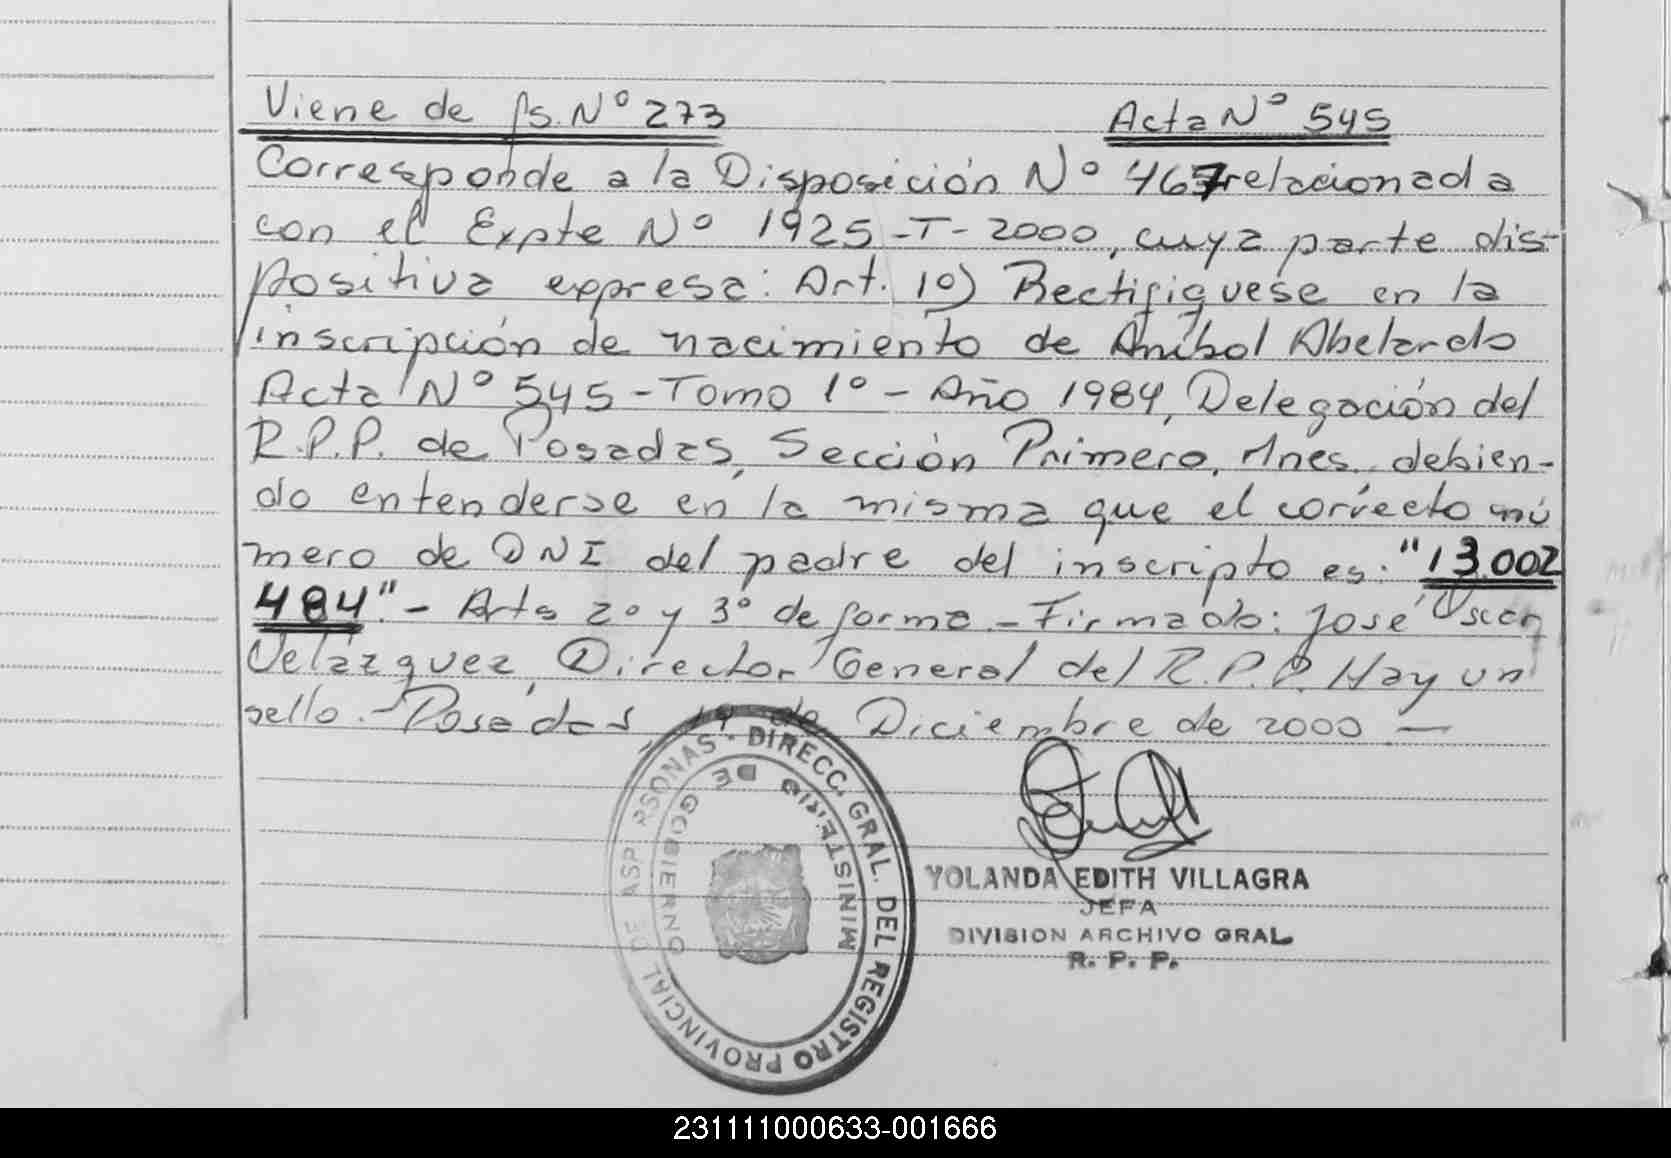 Viene de fs. Nº 273 Acta Nº 545
Corresponde a la Disposición Nº 467 relacionada
con el Expte Nº 1925-T-2000, cuya parte dis-
positiva expresa: Art. 1º) Rectifiquese en la
inscripción de nacimiento de Anibal Abelardo
Acta Nº 545 - Tomo 1º - Año 1984, Delegación del
R.P.P. de Posadas, Sección Primero, Mnes. debien-
do entenderse en la misma que el correcto nú
mero de DNI del padre del inscripto es: "13.002
484". - Arts 2º y 3º de forma - Firmado: José Oscar
Velázquez, Director General del R.P.P. Hay un
sello. - Posadas, 19 de Diciembre de 2000 —
DIRECC. GRAL. DEL REGISTRO PROVINCIAL DE
MINISTERIO DE GOBIERNO
YOLANDA EDITH VILLAGRA
JEFA
DIVISION ARCHIVO GRAL.
R. P. P.
231111000633-001666